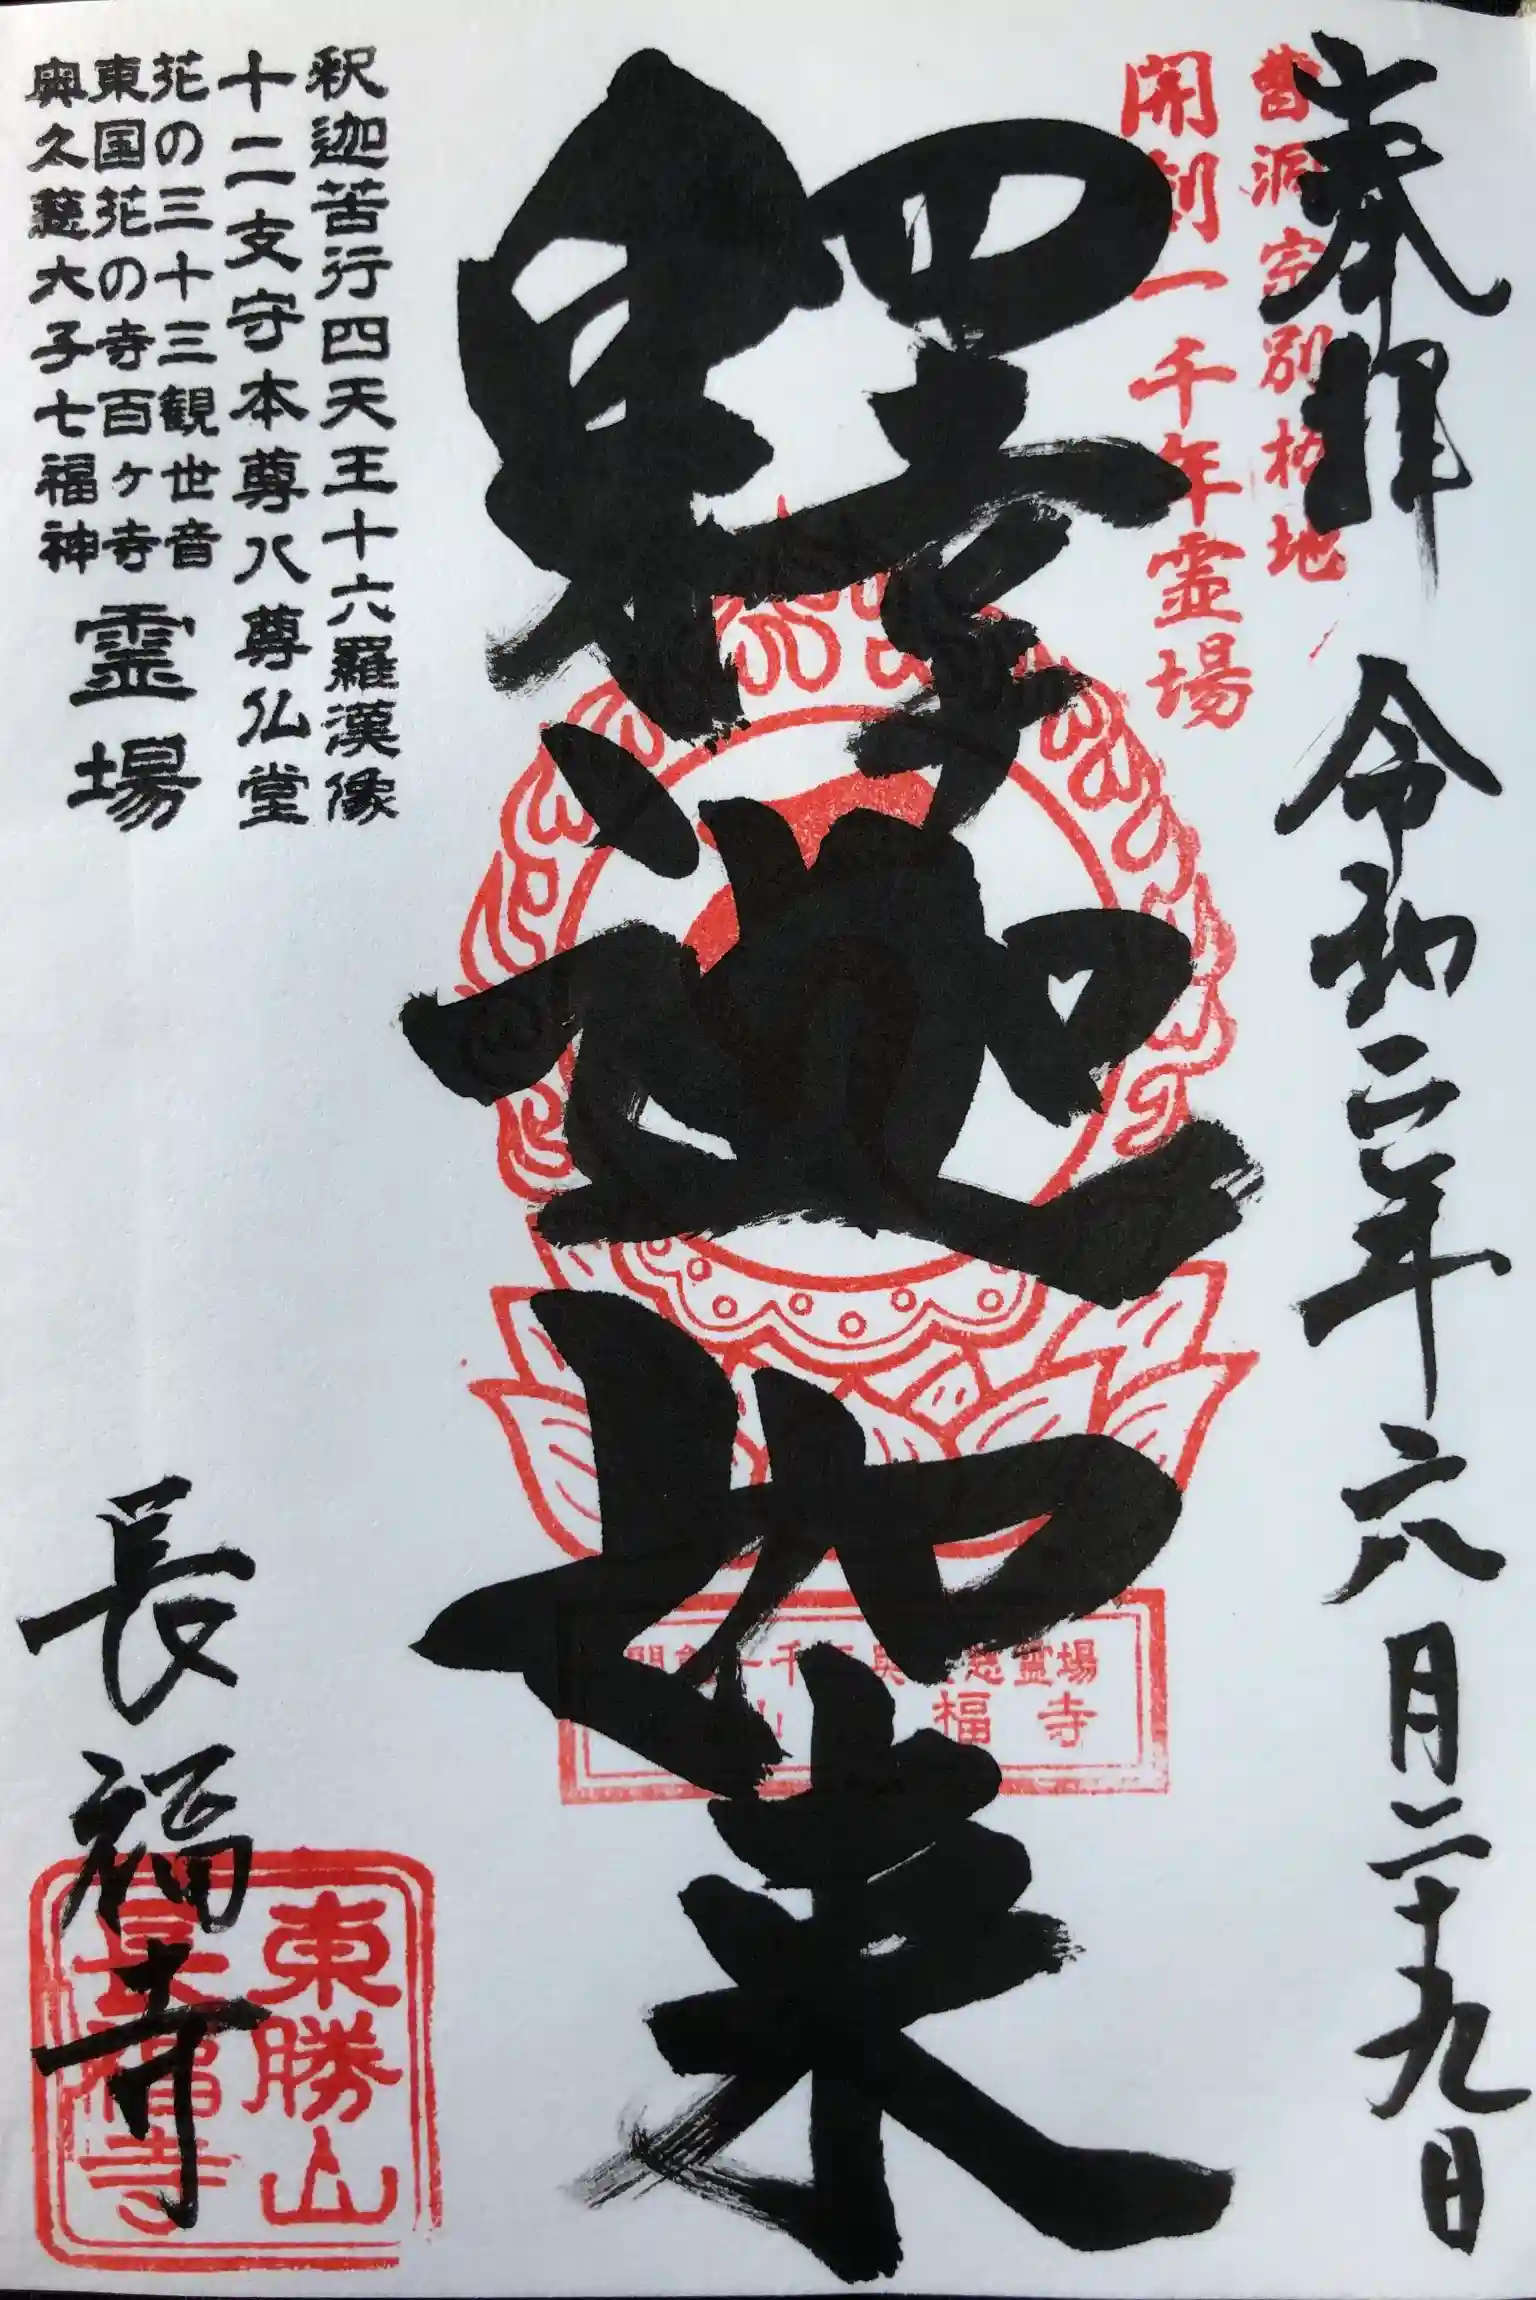 奉拝
令和二年六月二十九日
曹洞宗別格地
開創一千年霊場
釋迦如来
開創一千年奥久慈霊場
山 福寺
釈迦苦行四天王十六羅漢像
十二支守本尊八尊仏堂
花の三十三観世音
東国花の寺百ヶ寺
奥久慈大子七福神
霊場
長福寺
東勝山
長福寺